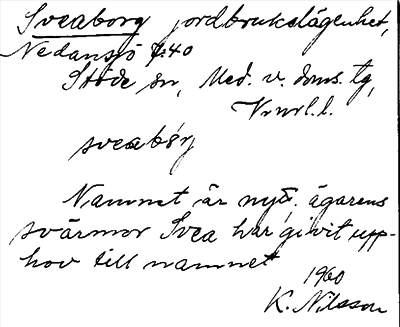 Sveaborg jordbrukslägenhet,
Nedansjö 7:40
Stöde sn, Med. v. doms. tg,
Vnrl. l.
sveabórj
Namnet är nytt. ägarens
svärmor Svea har givit upp-
hov till namnet
1960
K. Nilsson